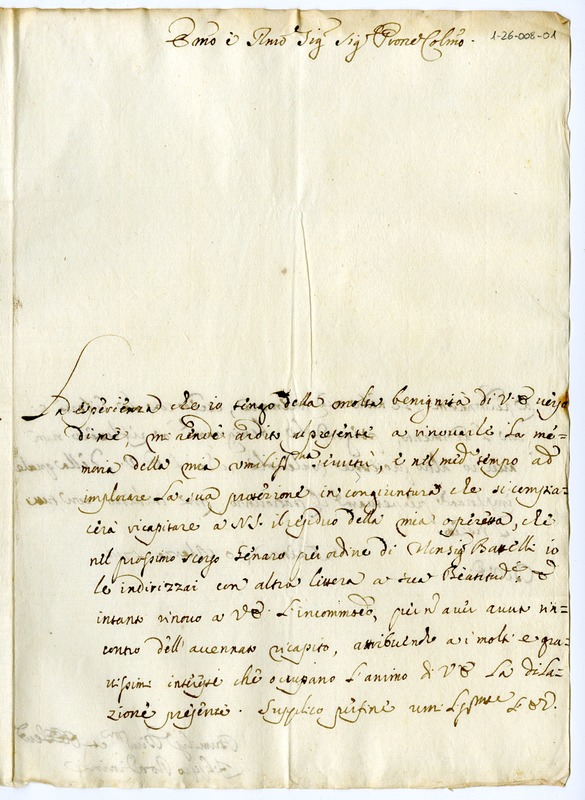 Emo e Rmo Sigr Sigr Prone Colmo.
1-26-008-01
La sperienza che io tengo della molta benignità di V. E. verso
di me mi rende ardito al presente a rinovarle la me=
moria della mia umiliss.ma servitù e nel med.o tempo ad
implorare la sua protezione in congiuntura che si compia=
cerà ricapitare a N. S. il residuo della mia operetta, che
nel prossimo scorso Genaro per ordine di Monsigr Battelli io
le indirizzai con altra lettera a Sua Beatitude. E
intanto rinovo a V. E. l'incommodo, per nō aver avuto rin=
contro dell'avennato ricapito, attribuendo a i molti e gra=
vissimi interessi che occupano l'animo di V. E. la dila=
zione presente. Supplico per fine um L' E. V.